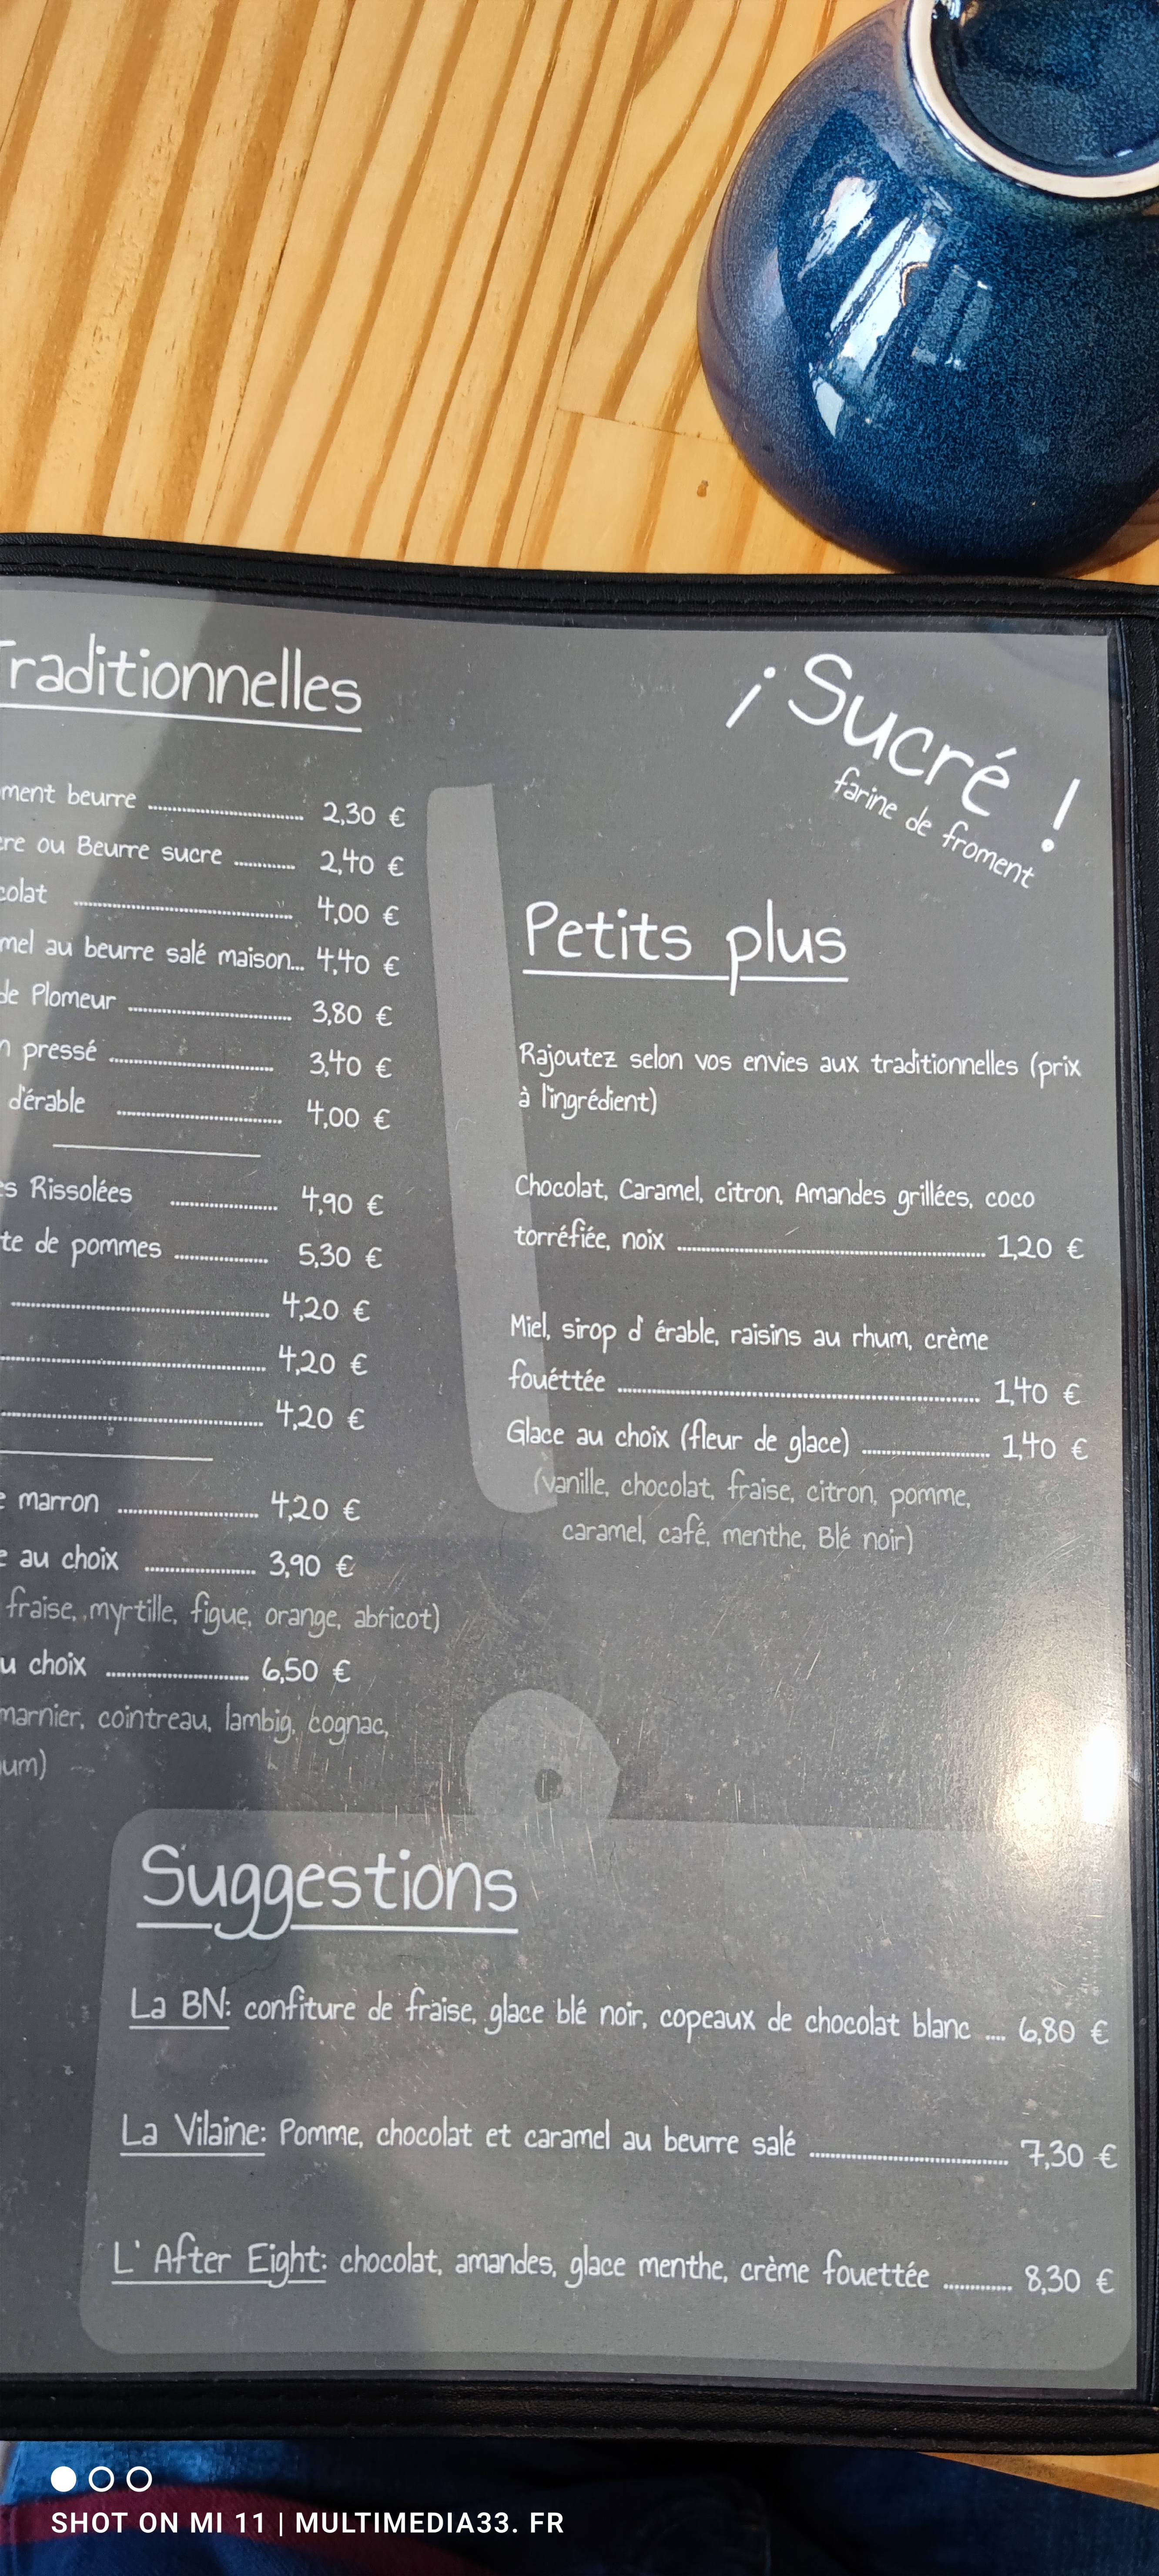 Traditionnelles
ment beurre ........ 2,30 €
re ou Beurre sucre ........ 2,40 €
colat ........ 4,00 €
mel au beurre salé maison... 4,40 €
de Plomeur ........ 3,80 €
n pressé ........ 3,40 €
d'érable ........ 4,00 €
es Rissolées ........ 4,90 €
te de pommes ........ 5,30 €
........ 4,20 €
........ 4,20 €
........ 4,20 €
e marron ........ 4,20 €
e au choix ........ 3,90 €
fraise, myrtille, figue, orange, abricot)
u choix ........ 6,50 €
marnier, cointreau, lambig, cognac,
um)
¡ Sucré !
farine de froment
Petits plus
Rajoutez selon vos envies aux traditionnelles (prix
à l'ingrédient)
Chocolat, Caramel, citron, Amandes grillées, coco
torréfiée, noix ........ 1,20 €
Miel, sirop d' érable, raisins au rhum, crème
fouéttée ........ 1,40 €
Glace au choix (fleur de glace) ........ 1,40 €
(vanille, chocolat, fraise, citron, pomme,
caramel, café, menthe, Blé noir)
Suggestions
La BN: confiture de fraise, glace blé noir, copeaux de chocolat blanc .... 6,80 €
La Vilaine: Pomme, chocolat et caramel au beurre salé ........ 7,30 €
L' After Eight: chocolat, amandes, glace menthe, crème fouettée ........ 8,30 €
SHOT ON MI 11 | MULTIMEDIA33. FR